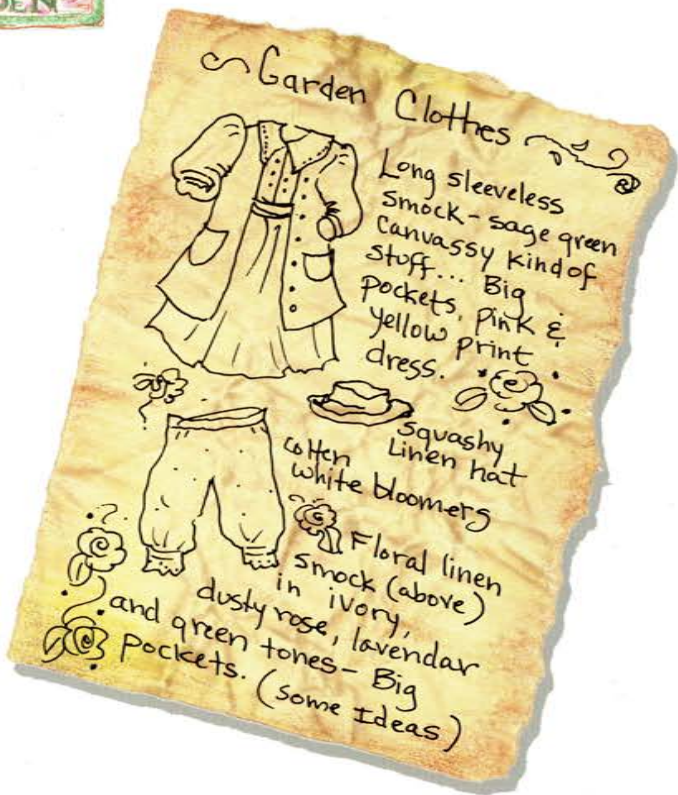 DEN
Garden Clothes
Long sleeveless
smock - sage green
canvassy kind of
stuff... Big
pockets, pink &
yellow print
dress.
squashy
Linen hat
cotten
white bloomers
Floral linen
smock (above)
in ivory,
dusty rose, lavendar
and green tones - Big
pockets. (some Ideas)